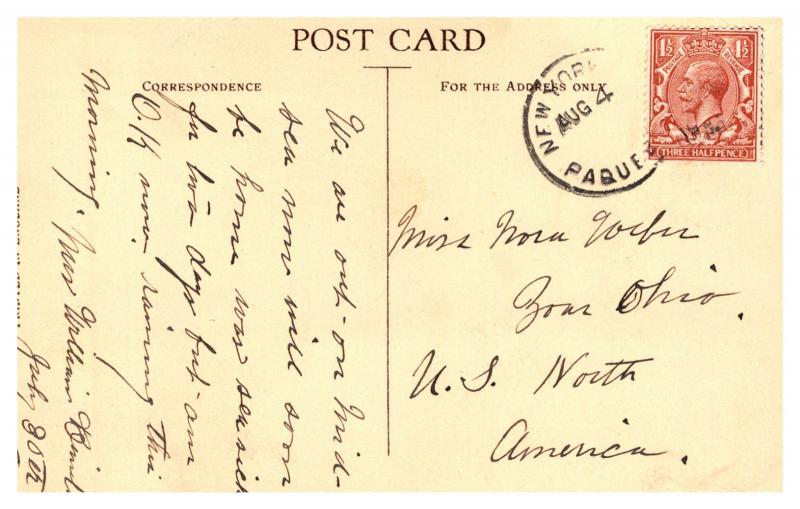 POST CARD
CORRESPONDENCE
FOR THE ADDRESS ONLY
We are out on Mid-
sea now will soon
be home was sea sick
for two days but am
O.K now raining this
Morning.
Mrs William
July 30th
NEW YORK
AUG 4
PAQUE
1½ 1½
THREE HALFPENCE
Miss Nora
Zoar Ohio.
U.S. North
America.